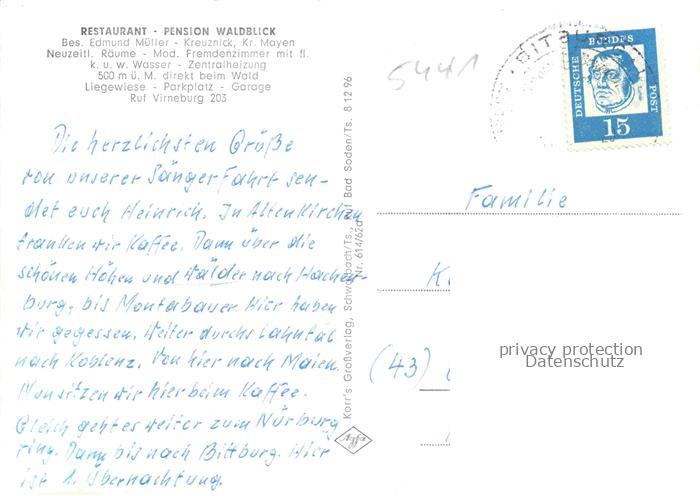 RESTAURANT - PENSION WALDBLICK
Bes. Edmund Müller - Kreuznick, Kr. Mayen
Neuzeitl. Räume - Mod. Fremdenzimmer mit fl.
k. u. w. Wasser - Zentralheizung
500 m ü. M. direkt beim Wald
Liegewiese - Parkplatz - Garage
Ruf Virneburg 203
Die herzlichsten Grüße
von unserer Sängerfahrt sen-
det euch Heinrich. In Altenkirchen
tranken wir Kaffee. Dann über die
schönen Höhen und wälder nach Hachen-
burg, bis Montabauer. Hier haben
wir gegessen. Weiter durchs Lahntal
nach Koblenz. Von hier nach Maien.
Nun sitzen wir hier beim Kaffee.
Gleich geht es weiter zum Nürburg
ring. Dann bis nach Bittburg. Hier
ist 1. Übernachtung.
Korr's Großverlag, Schwalbach/Ts. Bad Soden/Ts. 8 12 96
Nr. 614/62d
Agfa
5441
BITBURG
DEUTSCHE BUNDES POST
15
Familie
K
(43)
privacy protection
Datenschutz